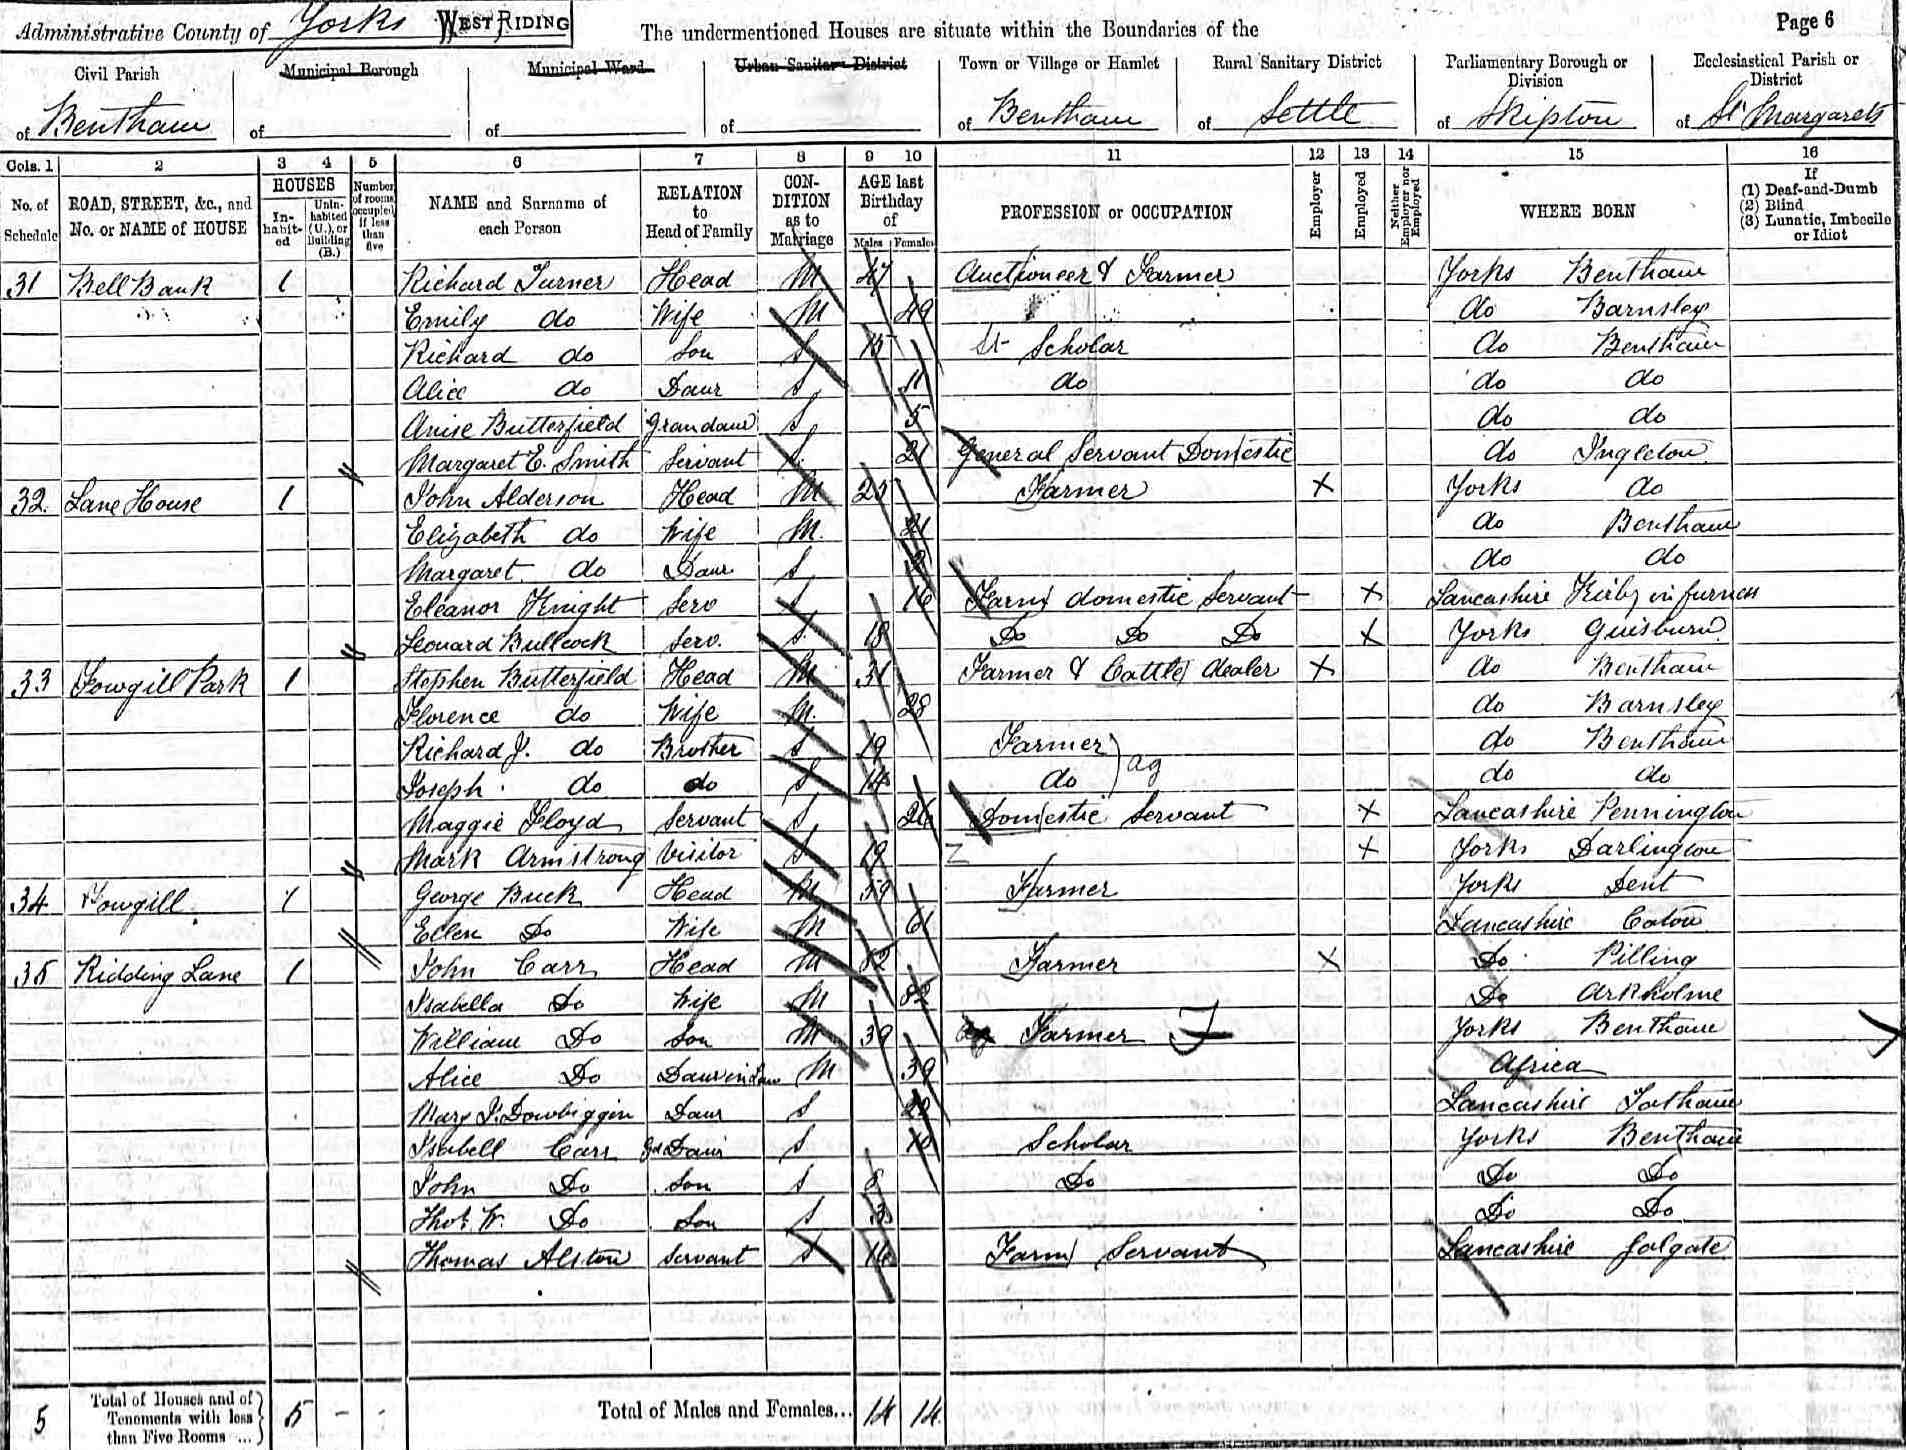 Administrative County of Yorks WEST RIDING The undermentioned Houses are situate within the Boundaries of the Page 6
Civil Parish Municipal Borough Municipal Ward Urban Sanitary District Town or Village or Hamlet Rural Sanitary District Parliamentary Borough or Division Ecclesiastical Parish or District
of Bentham of of of of Bentham of Settle of Skipton of St Margarets
Cols. 1 2 3 4 5 6 7 8 9 10 11 12 13 14 15 16
No. of Schedule ROAD, STREET, &c., and No. or NAME of HOUSE HOUSES In-habit-ed Unin-habited (U.), or Building (B.) Number of rooms occupied if less than five NAME and Surname of each Person RELATION to Head of Family CON-DITION as to Marriage AGE last Birthday of Males Females PROFESSION or OCCUPATION Employer Employed Neither Employer nor Employed WHERE BORN If (1) Deaf-and-Dumb (2) Blind (3) Lunatic, Imbecile or Idiot
31 Bell Bank 1 Richard Turner Head M 47 Auctioneer & Farmer Yorks Bentham
Emily do Wife M 49 do Barnsley
Richard do Son S 15 Scholar do Bentham
Alice do Daur S 11 do do do
Anise Butterfield Grandaur S 5 do do
Margaret E. Smith Servant S. 21 General Servant Domestic do Ingleton
32. Lane House 1 John Alderson Head M 25 Farmer X Yorks do
Elizabeth do Wife M. 21 do Bentham
Margaret do Daur S do do
Eleanor Knight Serv S 16 Farm domestic Servant X Lancashire Kirby in furness
Leonard Bullock Serv. S. 18 Do Do Do X Yorks Guisburn
33 Fowgill Park 1 Stephen Butterfield Head M 31 Farmer & Cattle dealer X do Bentham
Florence do Wife M. 28 do Barnsley
Richard J. do Brother S 19 Farmer ) ag do Bentham
Joseph do do S 14 do do do
Maggie Floyd Servant S 26 Domestic Servant X Lancashire Pennington
Mark Armstrong Visitor S 19 X Yorks Darlington
34 Fowgill. 1 George Buck Head M 59 Farmer Yorks Dent
Ellen Do Wife M 61 Lancashire Caton
35 Ridding Lane 1 John Carr Head M 82 Farmer X Do Pilling
Isabella Do Wife M 82 Do Arkholme
William Do Son M 39 Farmer Yorks Bentham
Alice Do Daur in Law M 39 Africa
Mary J. Dowbiggin Daur S Lancashire Tatham
Isabell Carr Gd Daur S 10 Scholar Yorks Bentham
John Do Son S 8 Do Do Do
Thos. W. Do Son S 3 Do Do
Thomas Alston Servant S 16 Farm Servant Lancashire Galgate
5 Total of Houses and of Tenements with less than Five Rooms ... 5 - - Total of Males and Females... 14 14